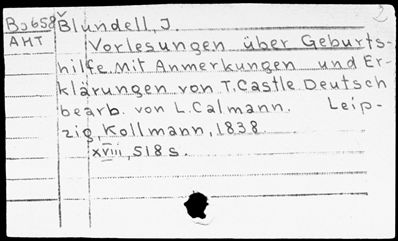 Bo658 Blundell, J. 2
AHT Vorlesungen über Geburts-
hilfe. Mit Anmerkungen und Er-
klärungen von T. Castle. Deutsch
bearb. von L. Calmann. Leip-
zig, Kollmann, 1838.
XVIII, 518 s.